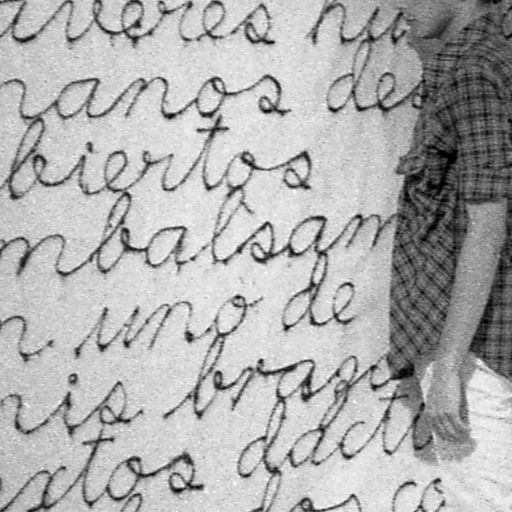 averes hu
nanos des
biertos
mbalsam
n uno de
ris brazo
extos dacti
dos ca